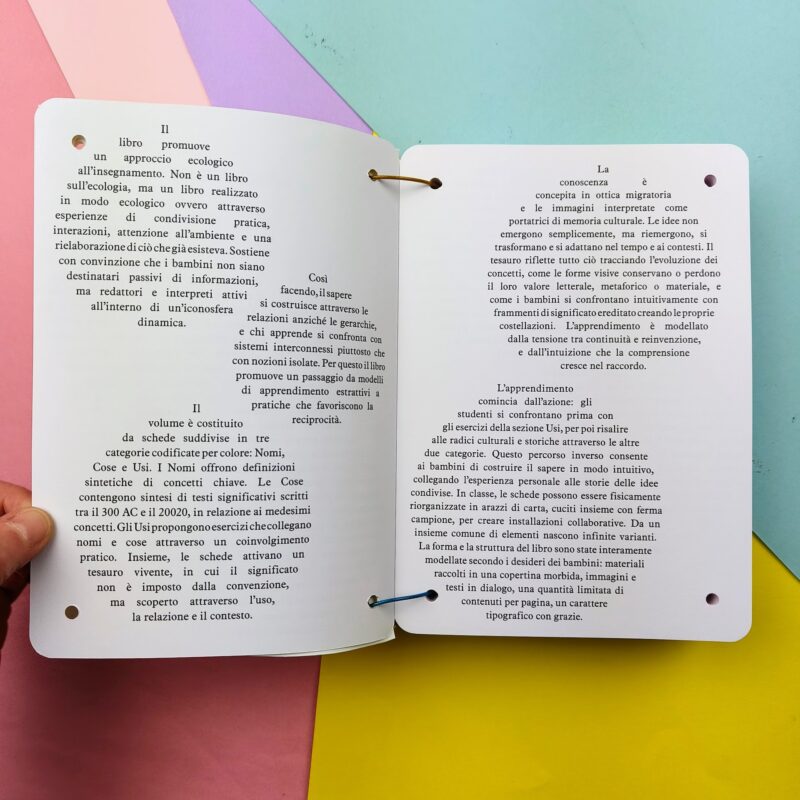 Il
libro promuove
un approccio ecologico
all'insegnamento. Non è un libro
sull'ecologia, ma un libro realizzato
in modo ecologico ovvero attraverso
esperienze di condivisione pratica,
interazioni, attenzione all'ambiente e una
rielaborazione di ciò che già esisteva. Sostiene
con convinzione che i bambini non siano
destinatari passivi di informazioni,
ma redattori e interpreti attivi
all'interno di un'iconosfera
dinamica.
Così
facendo, il sapere
si costruisce attraverso le
relazioni anziché le gerarchie,
e chi apprende si confronta con
sistemi interconnessi piuttosto che
con nozioni isolate. Per questo il libro
promuove un passaggio da modelli
di apprendimento estrattivi a
pratiche che favoriscono la
reciprocità.
Il
volume è costituito
da schede suddivise in tre
categorie codificate per colore: Nomi,
Cose e Usi. I Nomi offrono definizioni
sintetiche di concetti chiave. Le Cose
contengono sintesi di testi significativi scritti
tra il 300 AC e il 20020, in relazione ai medesimi
concetti. Gli Usi propongono esercizi che collegano
nomi e cose attraverso un coinvolgimento
pratico. Insieme, le schede attivano un
tesauro vivente, in cui il significato
non è imposto dalla convenzione,
ma scoperto attraverso l'uso,
la relazione e il contesto.
La
conoscenza è
concepita in ottica migratoria
e le immagini interpretate come
portatrici di memoria culturale. Le idee non
emergono semplicemente, ma riemergono, si
trasformano e si adattano nel tempo e ai contesti. Il
tesauro riflette tutto ciò tracciando l'evoluzione dei
concetti, come le forme visive conservano o perdono
il loro valore letterale, metaforico o materiale, e
come i bambini si confrontano intuitivamente con
frammenti di significato ereditato creando le proprie
costellazioni. L'apprendimento è modellato
dalla tensione tra continuità e reinvenzione,
e dall'intuizione che la comprensione
cresce nel raccordo.
L'apprendimento
comincia dall'azione: gli
studenti si confrontano prima con
gli esercizi della sezione Usi, per poi risalire
alle radici culturali e storiche attraverso le altre
due categorie. Questo percorso inverso consente
ai bambini di costruire il sapere in modo intuitivo,
collegando l'esperienza personale alle storie delle idee
condivise. In classe, le schede possono essere fisicamente
riorganizzate in arazzi di carta, cuciti insieme con ferma
campione, per creare installazioni collaborative. Da un
insieme comune di elementi nascono infinite varianti.
La forma e la struttura del libro sono state interamente
modellate secondo i desideri dei bambini: materiali
raccolti in una copertina morbida, immagini e
testi in dialogo, una quantità limitata di
contenuti per pagina, un carattere
tipografico con grazie.